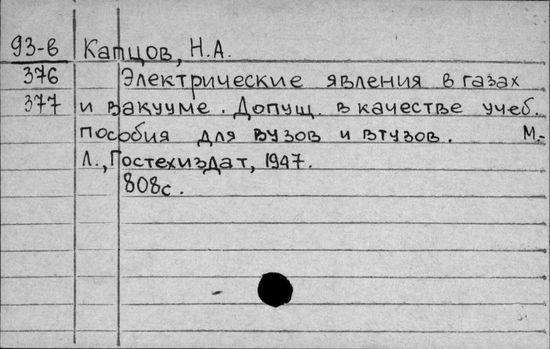 93-в Капцов, Н.А.
376 Электрические явления в газах
377 и вакууме. Допущ. в качестве учеб.
пособия для вузов и втузов. М.-
Л., Гостехиздат, 1947.
808с.